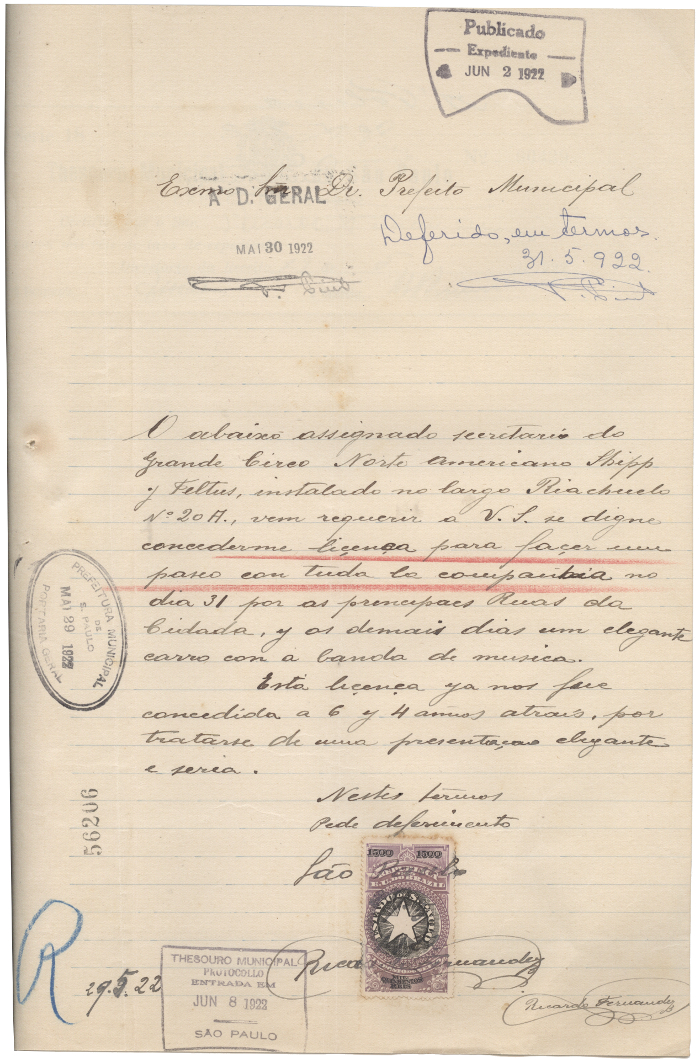 Publicado
Expediente
JUN 2 1922
Exmo Snr Dr. Prefeito Municipal
A D. GERAL
MAI 30 1922
Deferido, em termos.
31.5.922.
O abaixo assignado secretario do
Grande Circo Norte americano Shipp
y Feltus, instalado no largo Riachuelo
Nº 20 A., vem requerir a V.S. se digne
concederme licença para façer um
paseo con tuda la compañia no
dia 31 por as principaes Ruas da
Cidada, y os demais dias um elegante
carro con a banda de musica.
Esta liçença ya nos fue
concedida a 6 y 4 annos atrais, por
tratarse de uma presentaçao elegante
e seria.
Nestes termos
Pede deferimento
São
PREFEITURA MUNICIPAL
DE
S. PAULO
MAI 29 1922
PORTARIA GERAL
56206
1500 1500
ESTADO DE S. PAULO
Ricardo Fernandez
R
29.5.22
THESOURO MUNICIPAL
PROTOCOLLO
ENTRADA EM
JUN 8 1922
SÃO PAULO
Ricardo Fernandez